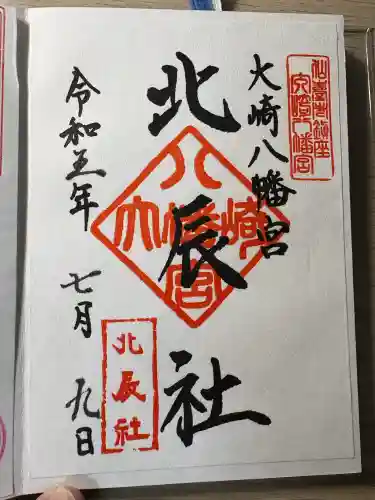 仙臺市鎮座
大崎八幡宮
大崎八幡宮
北辰社
大崎八幡宮
北辰社
令和五年 七月 九日